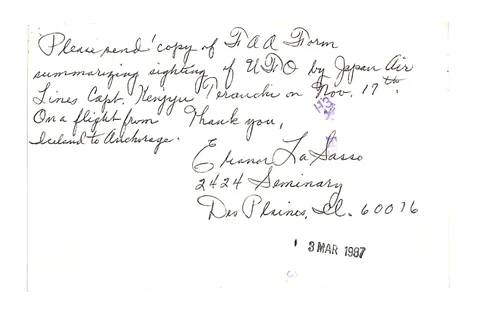 Please send copy of FAA Form
summarizing sighting of UFO by Japan Air
Lines Capt. Kenjyu Terauchi on Nov. 17th.
On a flight from Thank you,
Iceland to Anchorage.
Eleanor LaSasso
2424 Seminary
Des Plaines, Il. 60016
3 MAR 1987